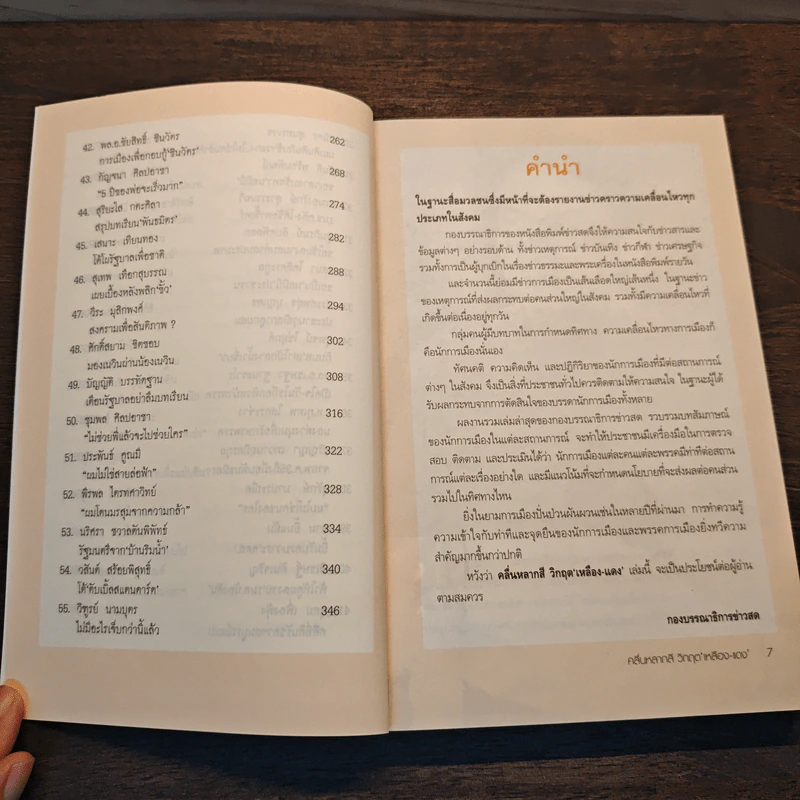 42. พล.อ.ชัยสิทธิ์ ชินวัตร 262
การเมืองเพื่อกอบกู้'ชินวัตร'
43. กัญจนา ศิลปอาชา 268
"5 ปีของพ่อจะเร็วมาก"
44. สุริยะใส กตะศิลา 274
สรุปบทเรียน'พันธมิตร'
45. เสนาะ เทียนทอง 282
โต้โผรัฐบาลเพื่อชาติ
46. สุเทพ เทือกสุบรรณ 288
เผยเบื้องหลังพลิก'ขั้ว'
47. วีระ มุสิกพงศ์ 294
สงครามเพื่อสันติภาพ ?
48. ศักดิ์สยาม ชิดชอบ 302
มองเนวินผ่านน้องเนวิน
49. บัญญัติ บรรทัดฐาน 308
เตือนรัฐบาลอย่าลืมบทเรียน
50. ชุมพล ศิลปอาชา 316
"ไม่ช่วยพี่แล้วจะไปช่วยใคร"
51. ประพันธ์ คูณมี 322
"ผมไม่ใช่สายล่อฟ้า"
52. พีรพล ไตรทศาวิทย์ 328
"ผมโดนมรสุมจากความกล้า"
53. นริศรา ชวาลตันพิพัทธ์ 334
รัฐมนตรีจาก'บ้านริมน้ำ'
54. วสันต์ สร้อยพิสุทธิ์ 340
โต้'ดับเบิ้ลสแตนดาร์ด'
55. วิฑูรย์ นามบุตร 346
ไม่มีอะไรเจ็บกว่านี้แล้ว
คำนำ
ในฐานะสื่อมวลชนซึ่งมีหน้าที่จะต้องรายงานข่าวคราวความเคลื่อนไหวทุก
ประเภทในสังคม
กองบรรณาธิการของหนังสือพิมพ์ข่าวสดจึงให้ความสนใจกับข่าวสารและ
ข้อมูลต่างๆ อย่างรอบด้าน ทั้งข่าวเหตุการณ์ ข่าวบันเทิง ข่าวกีฬา ข่าวเศรษฐกิจ
รวมทั้งการเป็นผู้บุกเบิกในเรื่องข่าวธรรมะและพระเครื่องในหนังสือพิมพ์รายวัน
และจำนวนนี้ย่อมมีข่าวการเมืองเป็นเส้นเลือดใหญ่เส้นหนึ่ง ในฐานะข่าว
ของเหตุการณ์ที่ส่งผลกระทบต่อคนส่วนใหญ่ในสังคม รวมทั้งมีความเคลื่อนไหวที่
เกิดขึ้นต่อเนื่องอยู่ทุกวัน
กลุ่มคนผู้มีบทบาทในการกำหนดทิศทาง ความเคลื่อนไหวทางการเมืองก็
คือนักการเมืองนั่นเอง
ทัศนคติ ความคิดเห็น และปฏิกิริยาของนักการเมืองที่มีต่อสถานการณ์
ต่างๆ ในสังคม จึงเป็นสิ่งที่ประชาชนทั่วไปควรติดตามให้ความสนใจ ในฐานะผู้ได้
รับผลกระทบจากการตัดสินใจของบรรดานักการเมืองทั้งหลาย
ผลงานรวมเล่มล่าสุดของกองบรรณาธิการข่าวสด รวบรวมบทสัมภาษณ์
ของนักการเมืองในแต่ละสถานการณ์ จะทำให้ประชาชนมีเครื่องมือในการตรวจ
สอบ ติดตาม และประเมินได้ว่า นักการเมืองแต่ละคนแต่ละพรรคมีท่าทีต่อสถาน
การณ์แต่ละเรื่องอย่างใด และมีแนวโน้มที่จะกำหนดนโยบายที่จะส่งผลต่อคนส่วน
รวมไปในทิศทางไหน
ยิ่งในยามการเมืองปั่นป่วนผันผวนเช่นในหลายปีที่ผ่านมา การทำความรู้
ความเข้าใจกับท่าทีและจุดยืนของนักการเมืองและพรรคการเมืองยิ่งทวีความ
สำคัญมากขึ้นกว่าปกติ
หวังว่า คลื่นหลากสี วิกฤต'เหลือง-แดง' เล่มนี้ จะเป็นประโยชน์ต่อผู้อ่าน
ตามสมควร
กองบรรณาธิการข่าวสด
คลื่นหลากสี วิกฤต'เหลือง-แดง' 7